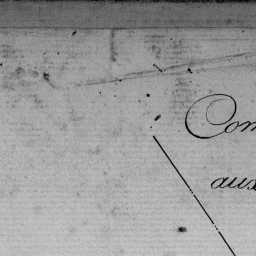 Com
aux